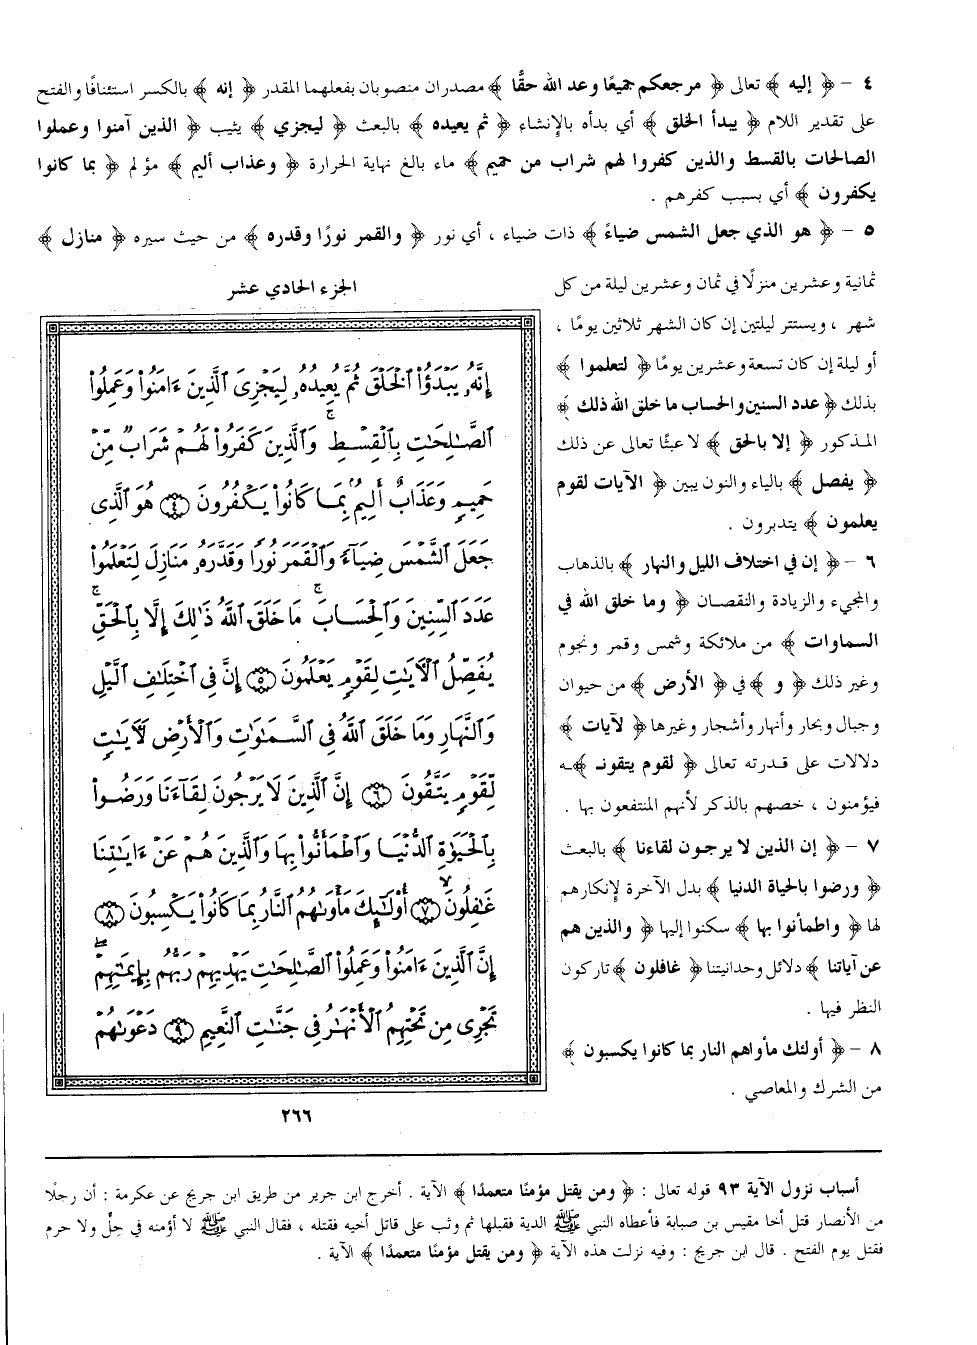 ٤ - ﴿ إليه ﴾ تعالى ﴿ مرجعكم جميعًا وعد الله حقًّا ﴾ مصدران منصوبان بفعلهما المقدر ﴿ إنه ﴾ بالكسر استئنافًا والفتح
على تقدير اللام ﴿ يبدأ الخلق ﴾ أي بدأه بالإنشاء ﴿ ثم يعيده ﴾ بالبعث ﴿ ليجزي ﴾ يثيب ﴿ الذين آمنوا وعملوا
الصالحات بالقسط والذين كفروا لهم شراب من حميم ﴾ ماء بالغ نهاية الحرارة ﴿ وعذاب أليم ﴾ مؤلم ﴿ بما كانوا
يكفرون ﴾ أي بسبب كفرهم .
٥ - ﴿ هو الذي جعل الشمس ضياءً ﴾ ذات ضياء ، أي نور ﴿ والقمر نورًا وقدره ﴾ من حيث سيره ﴿ منازل ﴾
ثمانية وعشرين منزلًا في ثمان وعشرين ليلة من كل
شهر ، ويستتر ليلتين إن كان الشهر ثلاثين يومًا ،
أو ليلة إن كان تسعة وعشرين يومًا ﴿ لتعلموا ﴾
بذلك ﴿ عدد السنين والحساب ما خلق الله ذلك ﴾
المذكور ﴿ إلا بالحق ﴾ لا عبثًا تعالى عن ذلك
﴿ يفصل ﴾ بالياء والنون يبين ﴿ الآيات لقوم
يعلمون ﴾ يتدبرون .
٦ - ﴿ إن في اختلاف الليل والنهار ﴾ بالذهاب
والمجيء والزيادة والنقصان ﴿ وما خلق الله في
السماوات ﴾ من ملائكة وشمس وقمر ونجوم
وغير ذلك ﴿ و ﴾ في ﴿ الأرض ﴾ من حيوان
وجبال وبحار وأنهار وأشجار وغيرها ﴿ لآيات ﴾
دلالات على قدرته تعالى ﴿ لقوم يتقونـ ﴾ـه
فيؤمنون ، خصهم بالذكر لأنهم المنتفعون بها .
٧ - ﴿ إن الذين لا يرجون لقاءنا ﴾ بالبعث
﴿ ورضوا بالحياة الدنيا ﴾ بدل الآخرة لإنكارهم
لها ﴿ واطمأنوا بها ﴾ سكنوا إليها ﴿ والذين هم
عن آياتنا ﴾ دلائل وحدانيتنا ﴿ غافلون ﴾ تاركون
النظر فيها .
٨ - ﴿ أولئك مأواهم النار بما كانوا يكسبون ﴾
من الشرك والمعاصي .
الجزء الحادي عشر
إِنَّهُۥ يَبْدَؤُا۟ ٱلْخَلْقَ ثُمَّ يُعِيدُهُۥ لِيَجْزِىَ ٱلَّذِينَ ءَامَنُوا۟ وَعَمِلُوا۟
ٱلصَّـٰلِحَـٰتِ بِٱلْقِسْطِ ۚ وَٱلَّذِينَ كَفَرُوا۟ لَهُمْ شَرَابٌ مِّنْ
حَمِيمٍ وَعَذَابٌ أَلِيمٌۢ بِمَا كَانُوا۟ يَكْفُرُونَ ﴿٤﴾ هُوَ ٱلَّذِى
جَعَلَ ٱلشَّمْسَ ضِيَآءً وَٱلْقَمَرَ نُورًا وَقَدَّرَهُۥ مَنَازِلَ لِتَعْلَمُوا۟
عَدَدَ ٱلسِّنِينَ وَٱلْحِسَابَ ۚ مَا خَلَقَ ٱللَّهُ ذَٰلِكَ إِلَّا بِٱلْحَقِّ ۚ
يُفَصِّلُ ٱلْـَٔايَـٰتِ لِقَوْمٍ يَعْلَمُونَ ﴿٥﴾ إِنَّ فِى ٱخْتِلَـٰفِ ٱلَّيْلِ
وَٱلنَّهَارِ وَمَا خَلَقَ ٱللَّهُ فِى ٱلسَّمَـٰوَٰتِ وَٱلْأَرْضِ لَـَٔايَـٰتٍ
لِّقَوْمٍ يَتَّقُونَ ﴿٦﴾ إِنَّ ٱلَّذِينَ لَا يَرْجُونَ لِقَآءَنَا وَرَضُوا۟
بِٱلْحَيَوٰةِ ٱلدُّنْيَا وَٱطْمَأَنُّوا۟ بِهَا وَٱلَّذِينَ هُمْ عَنْ ءَايَـٰتِنَا
غَـٰفِلُونَ ﴿٧﴾ أُو۟لَـٰٓئِكَ مَأْوَىٰهُمُ ٱلنَّارُ بِمَا كَانُوا۟ يَكْسِبُونَ ﴿٨﴾
إِنَّ ٱلَّذِينَ ءَامَنُوا۟ وَعَمِلُوا۟ ٱلصَّـٰلِحَـٰتِ يَهْدِيهِمْ رَبُّهُم بِإِيمَـٰنِهِمْ ۖ
تَجْرِى مِن تَحْتِهِمُ ٱلْأَنْهَـٰرُ فِى جَنَّـٰتِ ٱلنَّعِيمِ ﴿٩﴾ دَعْوَىٰهُمْ
٢٦٦
أسباب نزول الآية ٩٣ قوله تعالى : ﴿ ومن يقتل مؤمنًا متعمدًا ﴾ الآية . أخرج ابن جرير من طريق ابن جريج عن عكرمة : أن رجلًا
من الأنصار قتل أخا مقيس بن صبابة فأعطاه النبي ﷺ الدية فقبلها ثم وثب على قاتل أخيه فقتله ، فقال النبي ﷺ لا أؤمنه في حِلٍّ ولا حرم
فقتل يوم الفتح . قال ابن جريج : وفيه نزلت هذه الآية ﴿ ومن يقتل مؤمنًا متعمدًا ﴾ الآية .